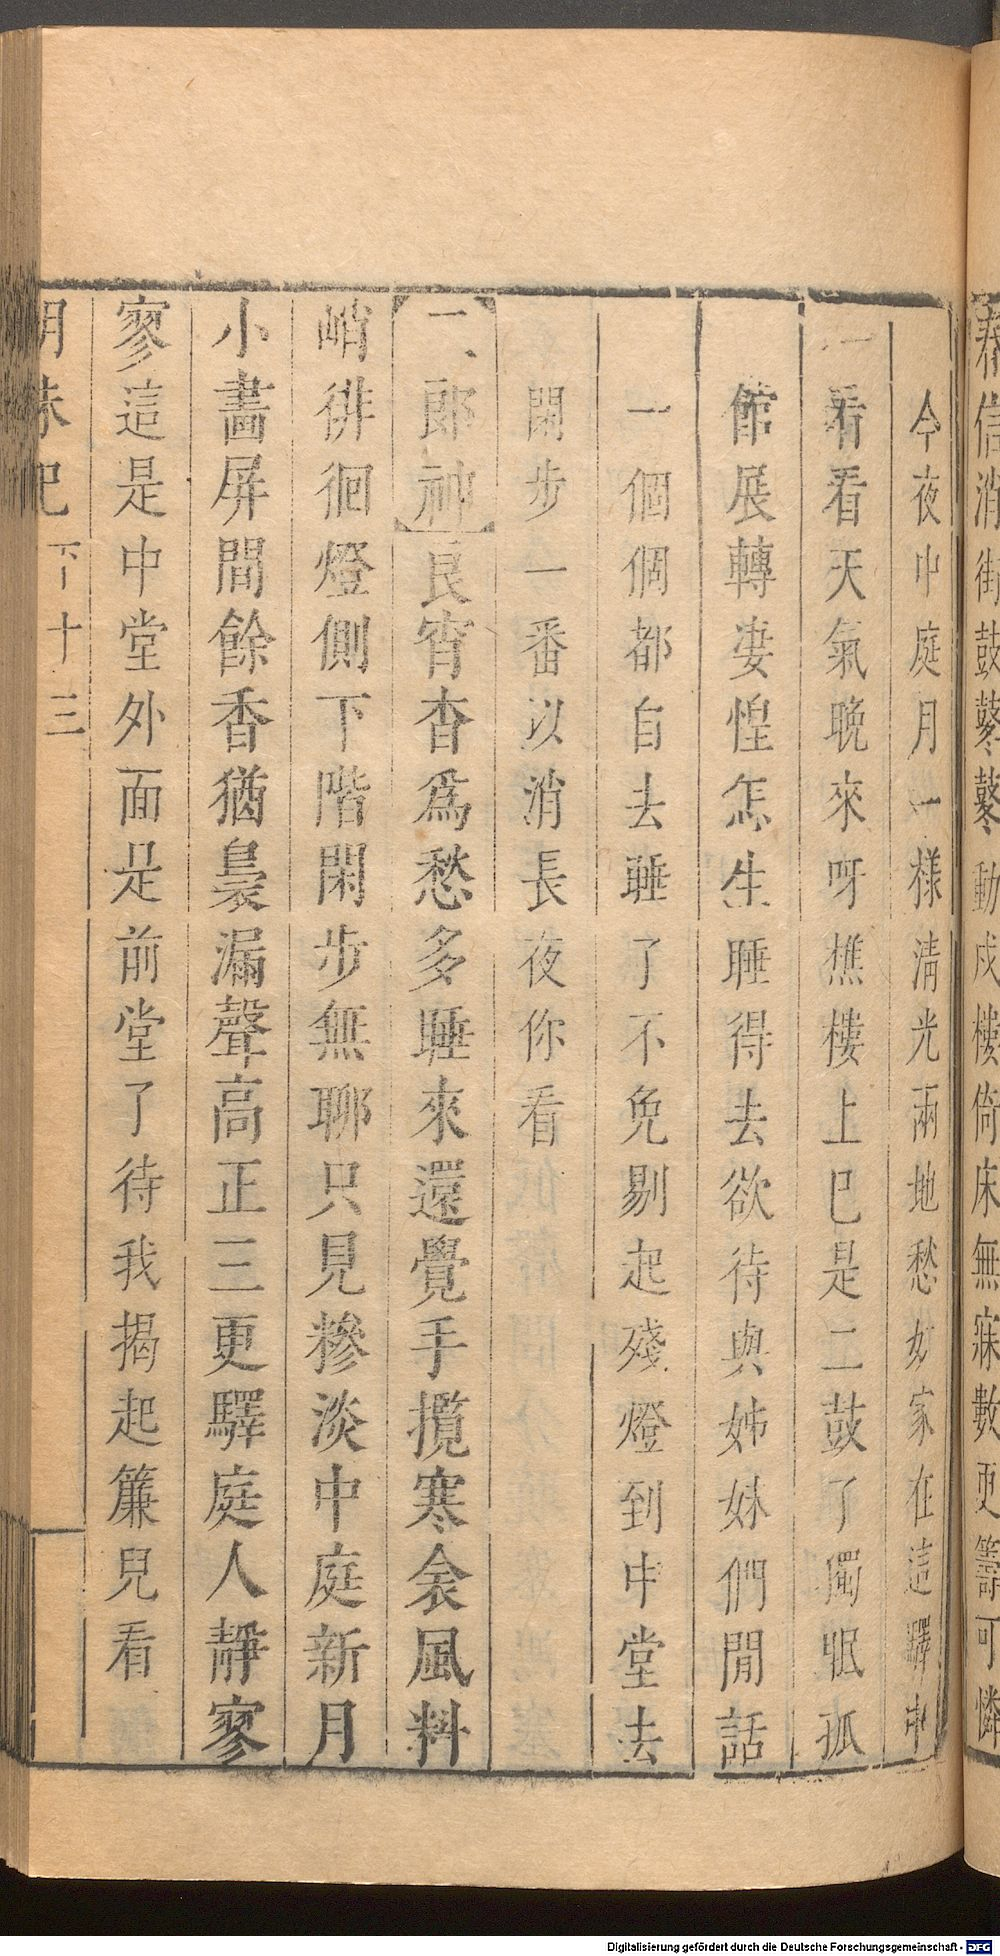 春信消街鼓鼕鼕動戍樓倚床無寐數更籌可憐
今夜中庭月一樣清光兩地愁奴家在這驛中
看看天氣晚來呀樵樓上巳是二鼓了獨眠孤
館展轉淒惶怎生睡得去欲待與姊妹們閒話
一個個都自去睡了不免剔起殘燈到中堂去
閑步一番以消長夜你看
二郎神良宵杳爲愁多睡來還覺手攬寒衾風料
峭徘徊燈側下階閑步無聊只見糝淡中庭新月
小畵屏間餘香猶裊漏聲高正三更驛庭人靜寥
寥這是中堂外面是前堂了待我揭起簾兒看
明珠記 下 十三
Digitalisierung gefördert durch die Deutsche Forschungsgemeinschaft - DFG